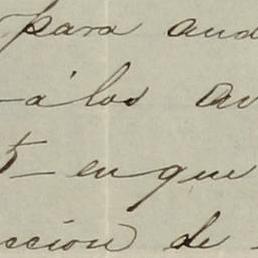 para and
á los an
5 - en que
cción de